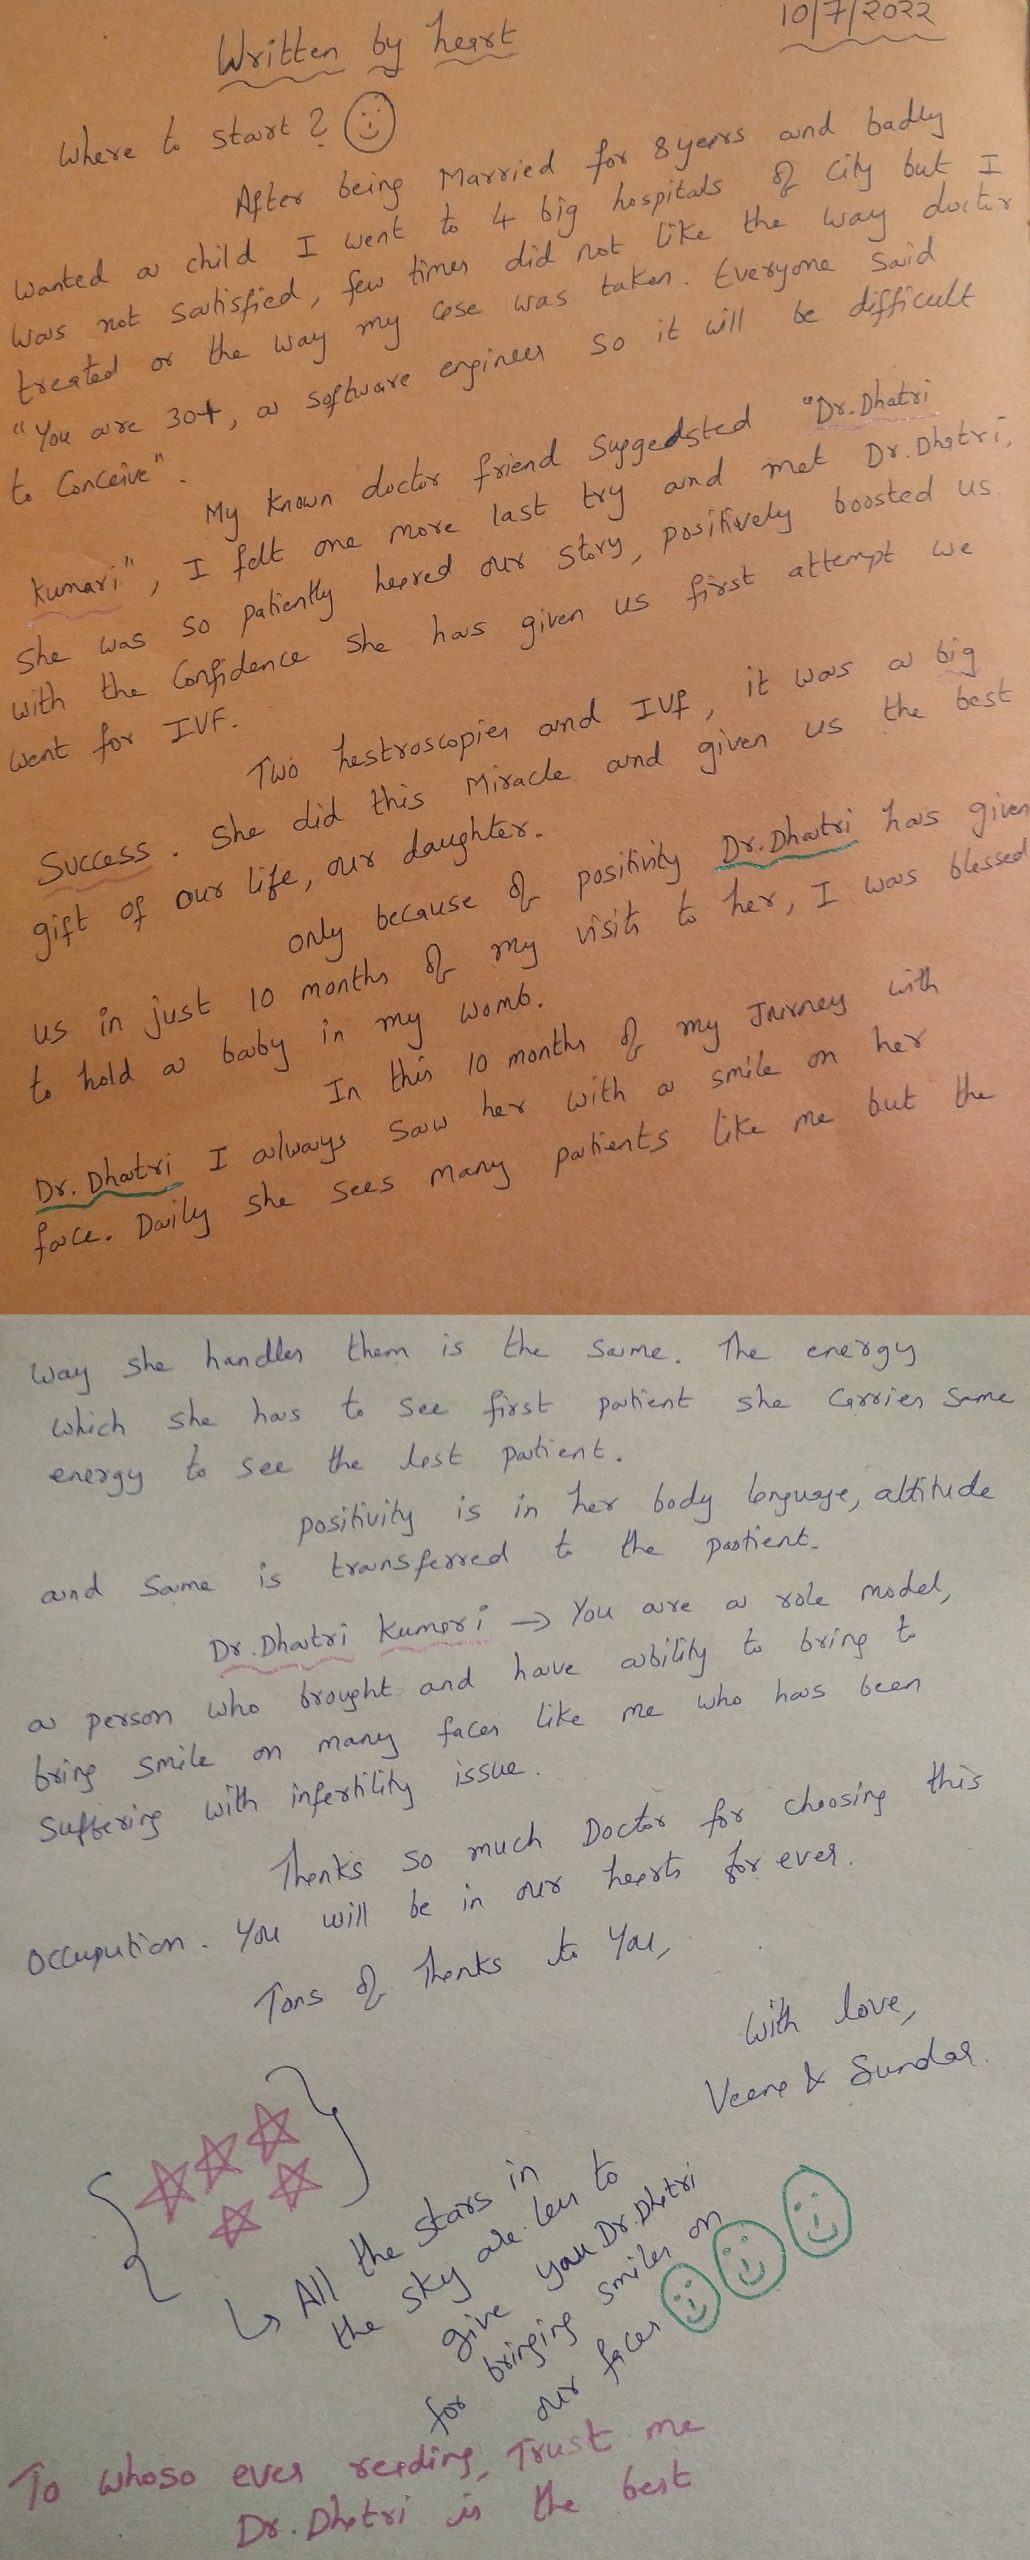 10/7/2022
Written by heart
Where to start?
After being Married for 8 years and badly
wanted a child I went to 4 big hospitals of city but I
was not satisfied, few times did not like the way doctor
treated or the way my case was taken. Everyone said
"You are 30+, a software engineer so it will be difficult
to Conceive".
My known doctor friend suggedsted "Dr. Dhatri
Kumari", I felt one more last try and met Dr. Dhatri,
She was so patiently heared our story, positively boosted us
with the Confidence she has given us first attempt we
went for IVF.
Two hestroscopies and IVF, it was a big
Success. She did this Miracle and given us the best
gift of our life, our daughter.
only because of positivity Dr. Dhatri has given
us in just 10 months of my visits to her, I was blessed
to hold a baby in my womb.
In this 10 months of my Journey with
Dr. Dhatri I always saw her with a smile on her
face. Daily she sees many patients like me but the
way she handles them is the same. The energy
which she has to see first patient she carries same
energy to see the last patient.
positivity is in her body language, attitude
and same is transferred to the patient.
Dr. Dhatri Kumari → You are a role model,
a person who brought and have ability to bring to
bring smile on many faces like me who has been
suffering with infertility issue.
Thanks so much Doctor for choosing this
occupution. You will be in our hearts for ever.
Tons of Thanks to You,
With love,
Veena & Sundar.
All the stars in
the sky are less to
give you Dr. Dhatri
for bringing smiles on
our faces
To whoso ever reading, Trust me
Dr. Dhatri is the best